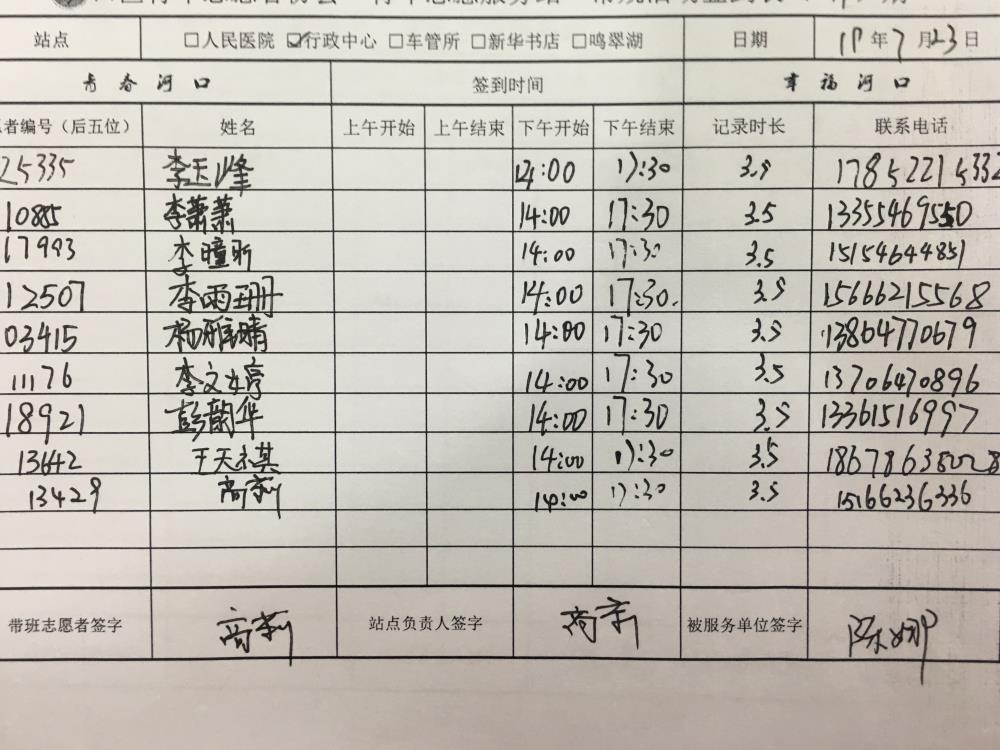 站点 □人民医院 ☑行政中心 □车管所 □新华书店 □鸣翠湖 日期 18年7月23日
青春河口 签到时间 幸福河口
者编号（后五位） 姓名 上午开始 上午结束 下午开始 下午结束 记录时长 联系电话
25335 李玉峰 14:00 17:30 3.5 1785221533
10885 李萧萧 14:00 17:30 3.5 13355469550
17993 李瞳昕 14:00 17:30 3.5 15154644851
12507 李雨珊 14:00 17:30 3.5 15666215568
03415 杨雅晴 14:00 17:30 3.5 13864770679
11176 李文婷 14:00 17:30 3.5 13706470896
18921 彭韵华 14:00 17:30 3.5 13361516997
13642 王天祺 14:00 17:30 3.5 18678638028
13429 高莉 14:00 17:30 3.5 15166236336
带班志愿者签字 高莉 站点负责人签字 高莉 被服务单位签字 陈娜